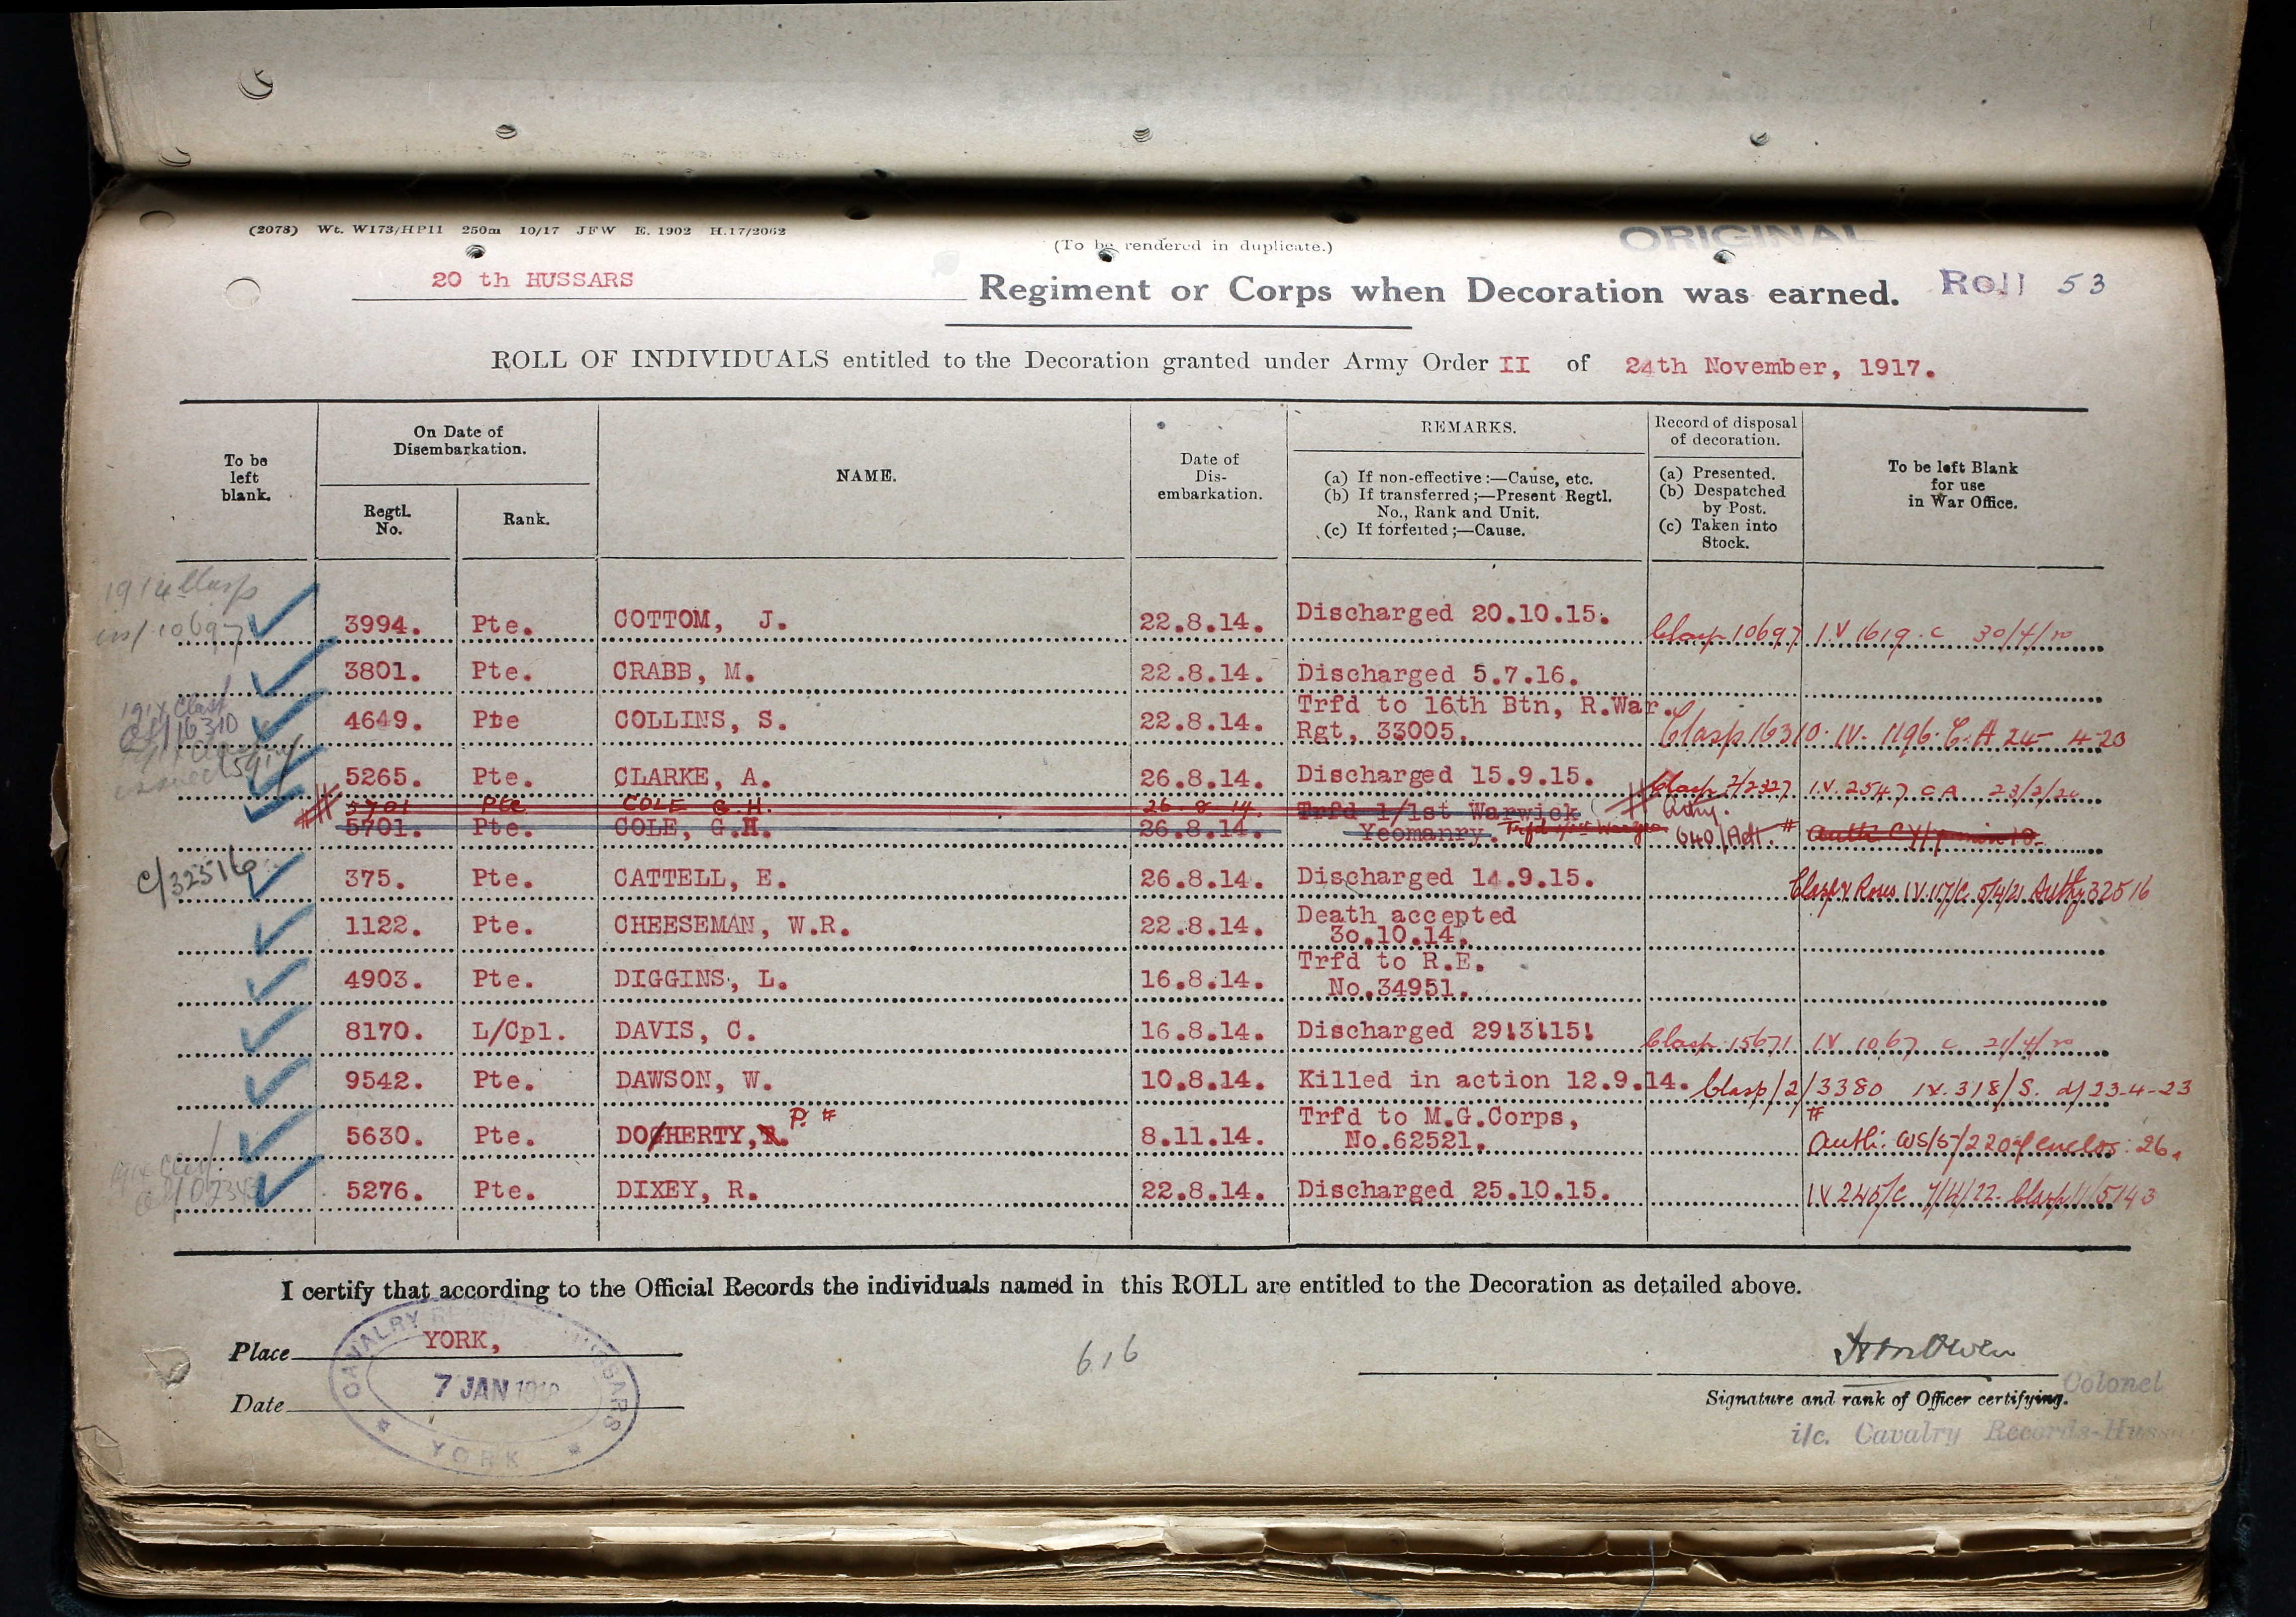 (2078) Wt. W173/HP11 250m 10/17 JFW E. 1902 H.17/2062
(To be rendered in duplicate.)
ORIGINAL
20 th HUSSARS Regiment or Corps when Decoration was earned. Roll 53
ROLL OF INDIVIDUALS entitled to the Decoration granted under Army Order II of 24th November, 1917.
To be left blank.
On Date of Disembarkation.
Regtl. No.
Rank.
NAME.
Date of Dis-embarkation.
REMARKS.
(a) If non-effective:—Cause, etc.
(b) If transferred;—Present Regtl. No., Rank and Unit.
(c) If forfeited;—Cause.
Record of disposal of decoration.
(a) Presented.
(b) Despatched by Post.
(c) Taken into Stock.
To be left Blank for use in War Office.
1914 Clasp
iss/10697
3994. Pte. COTTOM, J. 22.8.14. Discharged 20.10.15. Clasp 10697 I.V 1619.C 30/4/20
3801. Pte. CRABB, M. 22.8.14. Discharged 5.7.16.
1914 Clasp
16310
4649. Pte COLLINS, S. 22.8.14. Trfd to 16th Btn, R.War. Rgt, 33005. Clasp 16310. IV. 1196. C.A 24- 4-20
5265. Pte. CLARKE, A. 26.8.14. Discharged 15.9.15. Clasp I.V. 2547 C A
5701 Pte COLE G.H. 26-8-14
5701. Pte. COLE, G.H. 26.8.14. Trfd 1/1st Warwick Yeomanry. # Authy. 640/Adt. #
C/32516
375. Pte. CATTELL, E. 26.8.14. Discharged 14.9.15. Clasp & Roses IV.117/C 5/4/21 Authy 32516
1122. Pte. CHEESEMAN, W.R. 22.8.14. Death accepted 30.10.14.
4903. Pte. DIGGINS, L. 16.8.14. Trfd to R.E. No.34951.
8170. L/Cpl. DAVIS, C. 16.8.14. Discharged 29!3!15! Clasp 15671 IV 1067 C 21/4/20
9542. Pte. DAWSON, W. 10.8.14. Killed in action 12.9.14. Clasp/2/3380 IV.318/S. d/23-4-23
5630. Pte. DOGHERTY, P. # 8.11.14. Trfd to M.G.Corps, No.62521. # Auth: WS/5/ enclos: 26.
5276. Pte. DIXEY, R. 22.8.14. Discharged 25.10.15. IV 245/C Clasp
I certify that according to the Official Records the individuals named in this ROLL are entitled to the Decoration as detailed above.
Place YORK,
Date 7 JAN
CAVALRY HUSSARS
YORK
616
Signature and rank of Officer certifying.
Colonel
i/c. Cavalry Records-Huss